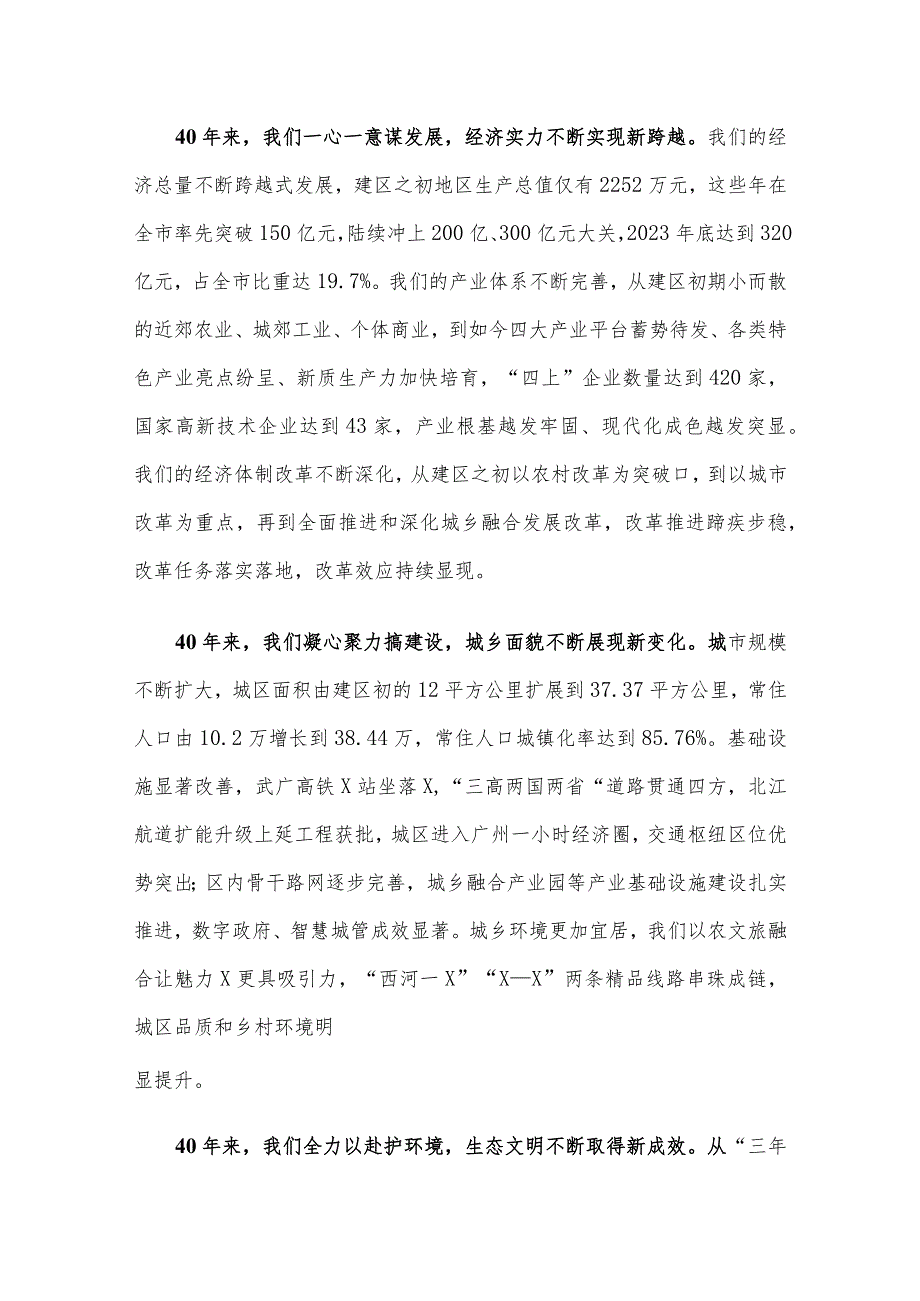 40 年来，我们一心一意谋发展，经济实力不断实现新跨越。我们的经
济总量不断跨越式发展，建区之初地区生产总值仅有 2252 万元，这些年在
全市率先突破 150 亿元,陆续冲上 200 亿、300 亿元大关,2023 年底达到 320
亿元，占全市比重达 19.7%。我们的产业体系不断完善，从建区初期小而散
的近郊农业、城郊工业、个体商业，到如今四大产业平台蓄势待发、各类特
色产业亮点纷呈、新质生产力加快培育，“四上”企业数量达到 420 家，
国家高新技术企业达到 43 家，产业根基越发牢固、现代化成色越发突显。
我们的经济体制改革不断深化，从建区之初以农村改革为突破口，到以城市
改革为重点，再到全面推进和深化城乡融合发展改革，改革推进蹄疾步稳，
改革任务落实落地，改革效应持续显现。
40 年来，我们凝心聚力搞建设，城乡面貌不断展现新变化。城市规模
不断扩大，城区面积由建区初的 12 平方公里扩展到 37.37 平方公里，常住
人口由 10.2 万增长到 38.44 万，常住人口城镇化率达到 85.76%。基础设
施显著改善，武广高铁 X 站坐落 X,“三高两国两省“道路贯通四方，北江
航道扩能升级上延工程获批，城区进入广州一小时经济圈，交通枢纽区位优
势突出；区内骨干路网逐步完善，城乡融合产业园等产业基础设施建设扎实
推进，数字政府、智慧城管成效显著。城乡环境更加宜居，我们以农文旅融
合让魅力 X 更具吸引力，“西河一 X”“X—X”两条精品线路串珠成链，
城区品质和乡村环境明
显提升。
40 年来，我们全力以赴护环境，生态文明不断取得新成效。从“三年